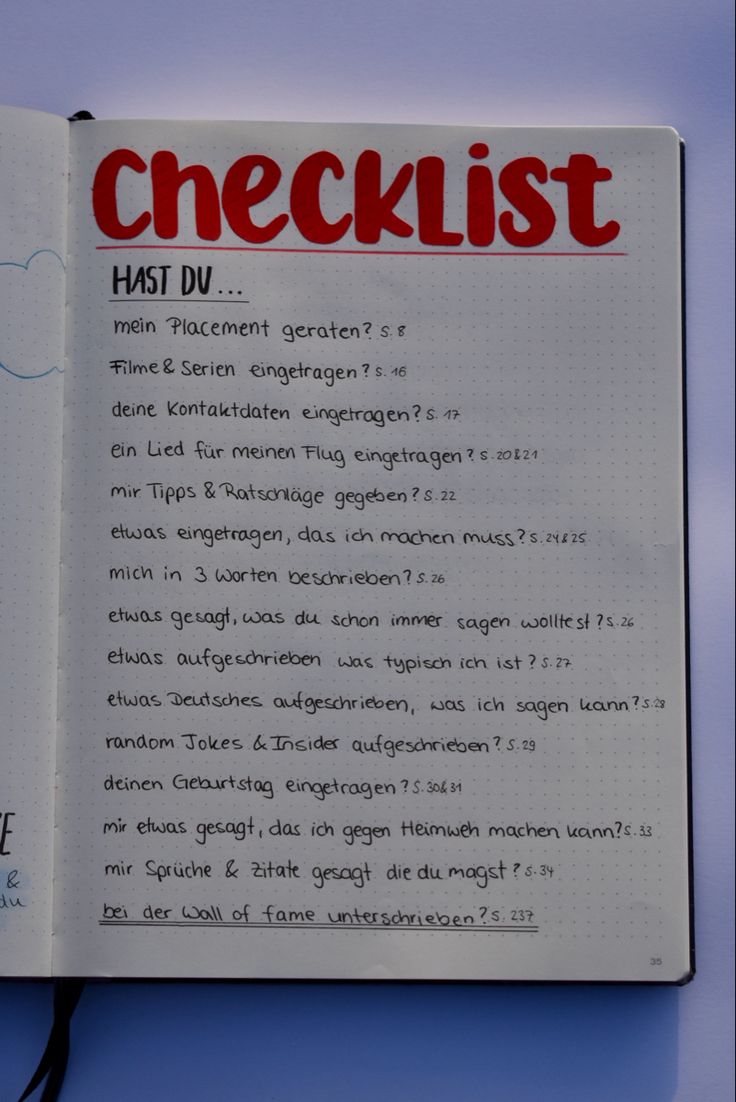 Checklist
HAST DU...
mein Placement geraten? S. 8
Filme & Serien eingetragen? S. 16
deine Kontaktdaten eingetragen? S. 17
ein Lied für meinen Flug eingetragen? S. 20 & 21
mir Tipps & Ratschläge gegeben? S. 22
etwas eingetragen, das ich machen muss? S. 24 & 25
mich in 3 Worten beschrieben? S. 26
etwas gesagt, was du schon immer sagen wolltest? S. 26
etwas aufgeschrieben was typisch ich ist? S. 27
etwas Deutsches aufgeschrieben, was ich sagen kann? S. 28
random Jokes & Insider aufgeschrieben? S. 29
deinen Geburtstag eingetragen? S. 30 & 31
mir etwas gesagt, das ich gegen Heimweh machen kann? S. 33
mir Sprüche & Zitate gesagt die du magst? S. 34
bei der Wall of fame unterschrieben? S. 237
35
&
du